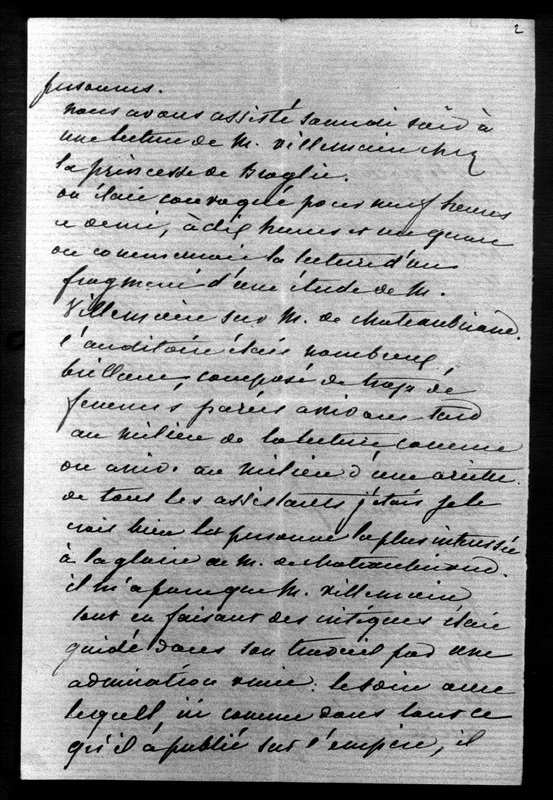 2
personnes.
nous avons assisté samedi soir à
une lecture de M. Villemain chez
la princesse de Broglie.
on était convoqué pour neuf heures
et demie, à dix heures et un quart
on commençait la lecture d'un
fragment d'une étude de M.
Villemain sur M. de chateaubriand.
l'auditoire était nombreux,
brillant, composé de trop de
femmes parées arrivant tard
au milieu de la lecture comme
on arrive au milieu d'une ariette.
de tous les assistants j'étais je le
crois bien la personne la plus intéressée
à la gloire de M. de chateaubriand.
il m'a paru que M. Villemain
tout en faisant des critiques était
guidé dans son travail par une
admiration vraie. le soin avec
lequel, ici comme dans tout ce
qu'il a publié sur l'empire, il